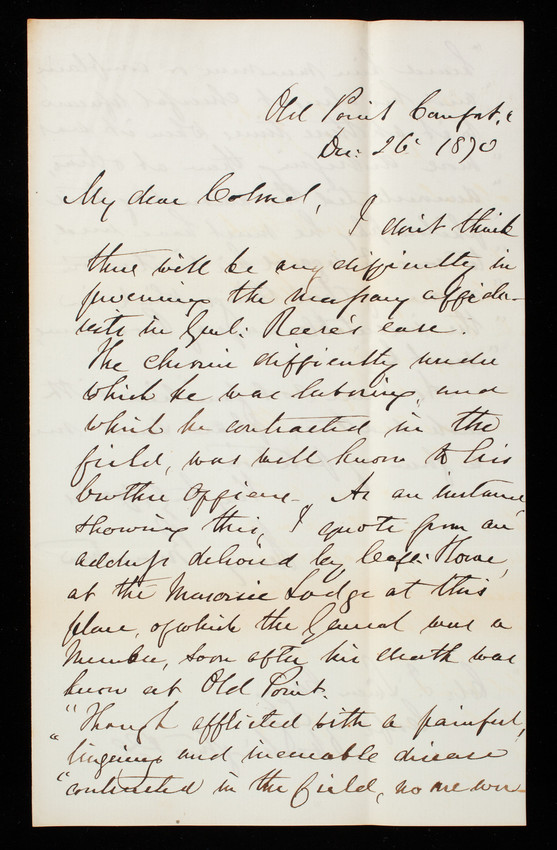 Old Point Comfort, 
Dec: 26 1870
My dear Colonel,
I don't think
there will be any difficulty in
procuring the necessary affida-
vits in Genl: Reese's case.
The chronic difficulty under
which he was laboring, and
which he contracted in the
field, was well known to his
brother Officers - As an instance,
showing this, I quote from an
address deliver'd by Capt: Howe,
at the Masonic Lodge at this
place, of which the General was a
member, soon after his death was
know at Old Point.
"Though afflicted with a painful,
"lingering and incurable disease
"contracted in the field, no one